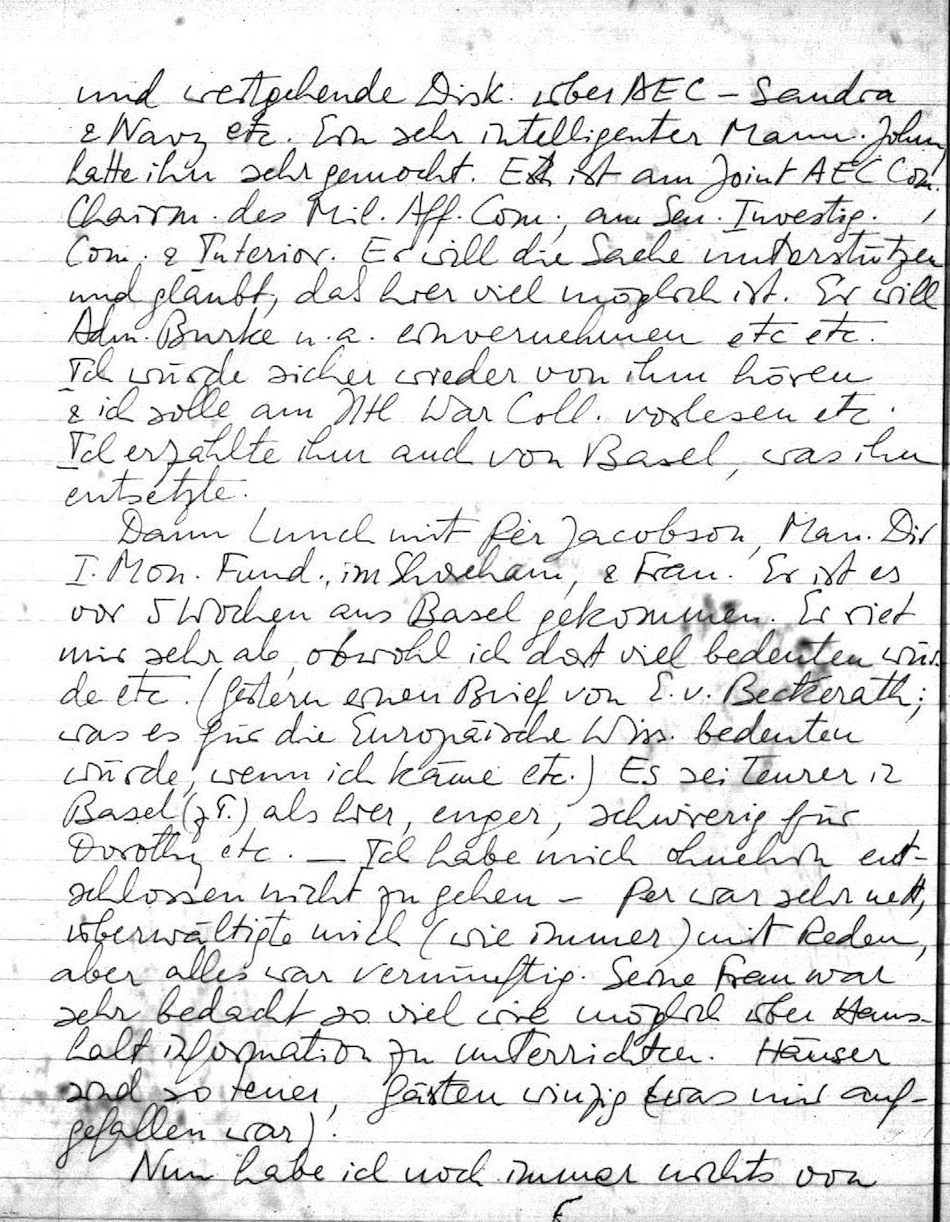 und weitgehende Disk. über AEC – Sandia
& Navy etc. Ein sehr intelligenter Mann. Johnny
hatte ihn sehr gemocht. Er ist am Joint AEC Com.
Chairm. des Mil. Aff. Com., am Sen. Investig.
Com. & Interior. Er will die Sache unterstützen
und glaubt, daß hier viel möglich ist. Er will
Adm. Burke u. a. einvernehmen etc etc.
Ich würde sicher wieder von ihm hören
& ich solle am Ntl War Coll. vorlesen etc.
Ich erzählte ihm auch von Basel, was ihn
entsetzte.
Dann Lunch mit Per Jacobson, Man. Dir
I. Mon. Fund., im Shoreham, & Frau. Er ist es
vor 5 Wochen aus Basel gekommen. Er riet
mir sehr ab, obwohl ich dort viel bedeuten wür
de etc. (Gestern einen Brief von E. v. Beckerath;
was es für die Europäische Wiss. bedeuten
würde, wenn ich käme etc.) Es sei teurer in
Basel (z T.) als hier, enger, schwierig für
Dorothy etc. – Ich habe mich ohnehin ent-
schlossen nicht zu gehen – Per war sehr nett,
überwältigte mich (wie immer) mit Reden,
aber alles war vernünftig. Seine Frau war
sehr bedacht so viel wie möglich über Haus-
halt information zu unterrichten. Häuser
sind so teuer, Gärten winzig (was mir auf-
gefallen war).
Nun habe ich noch immer nichts von